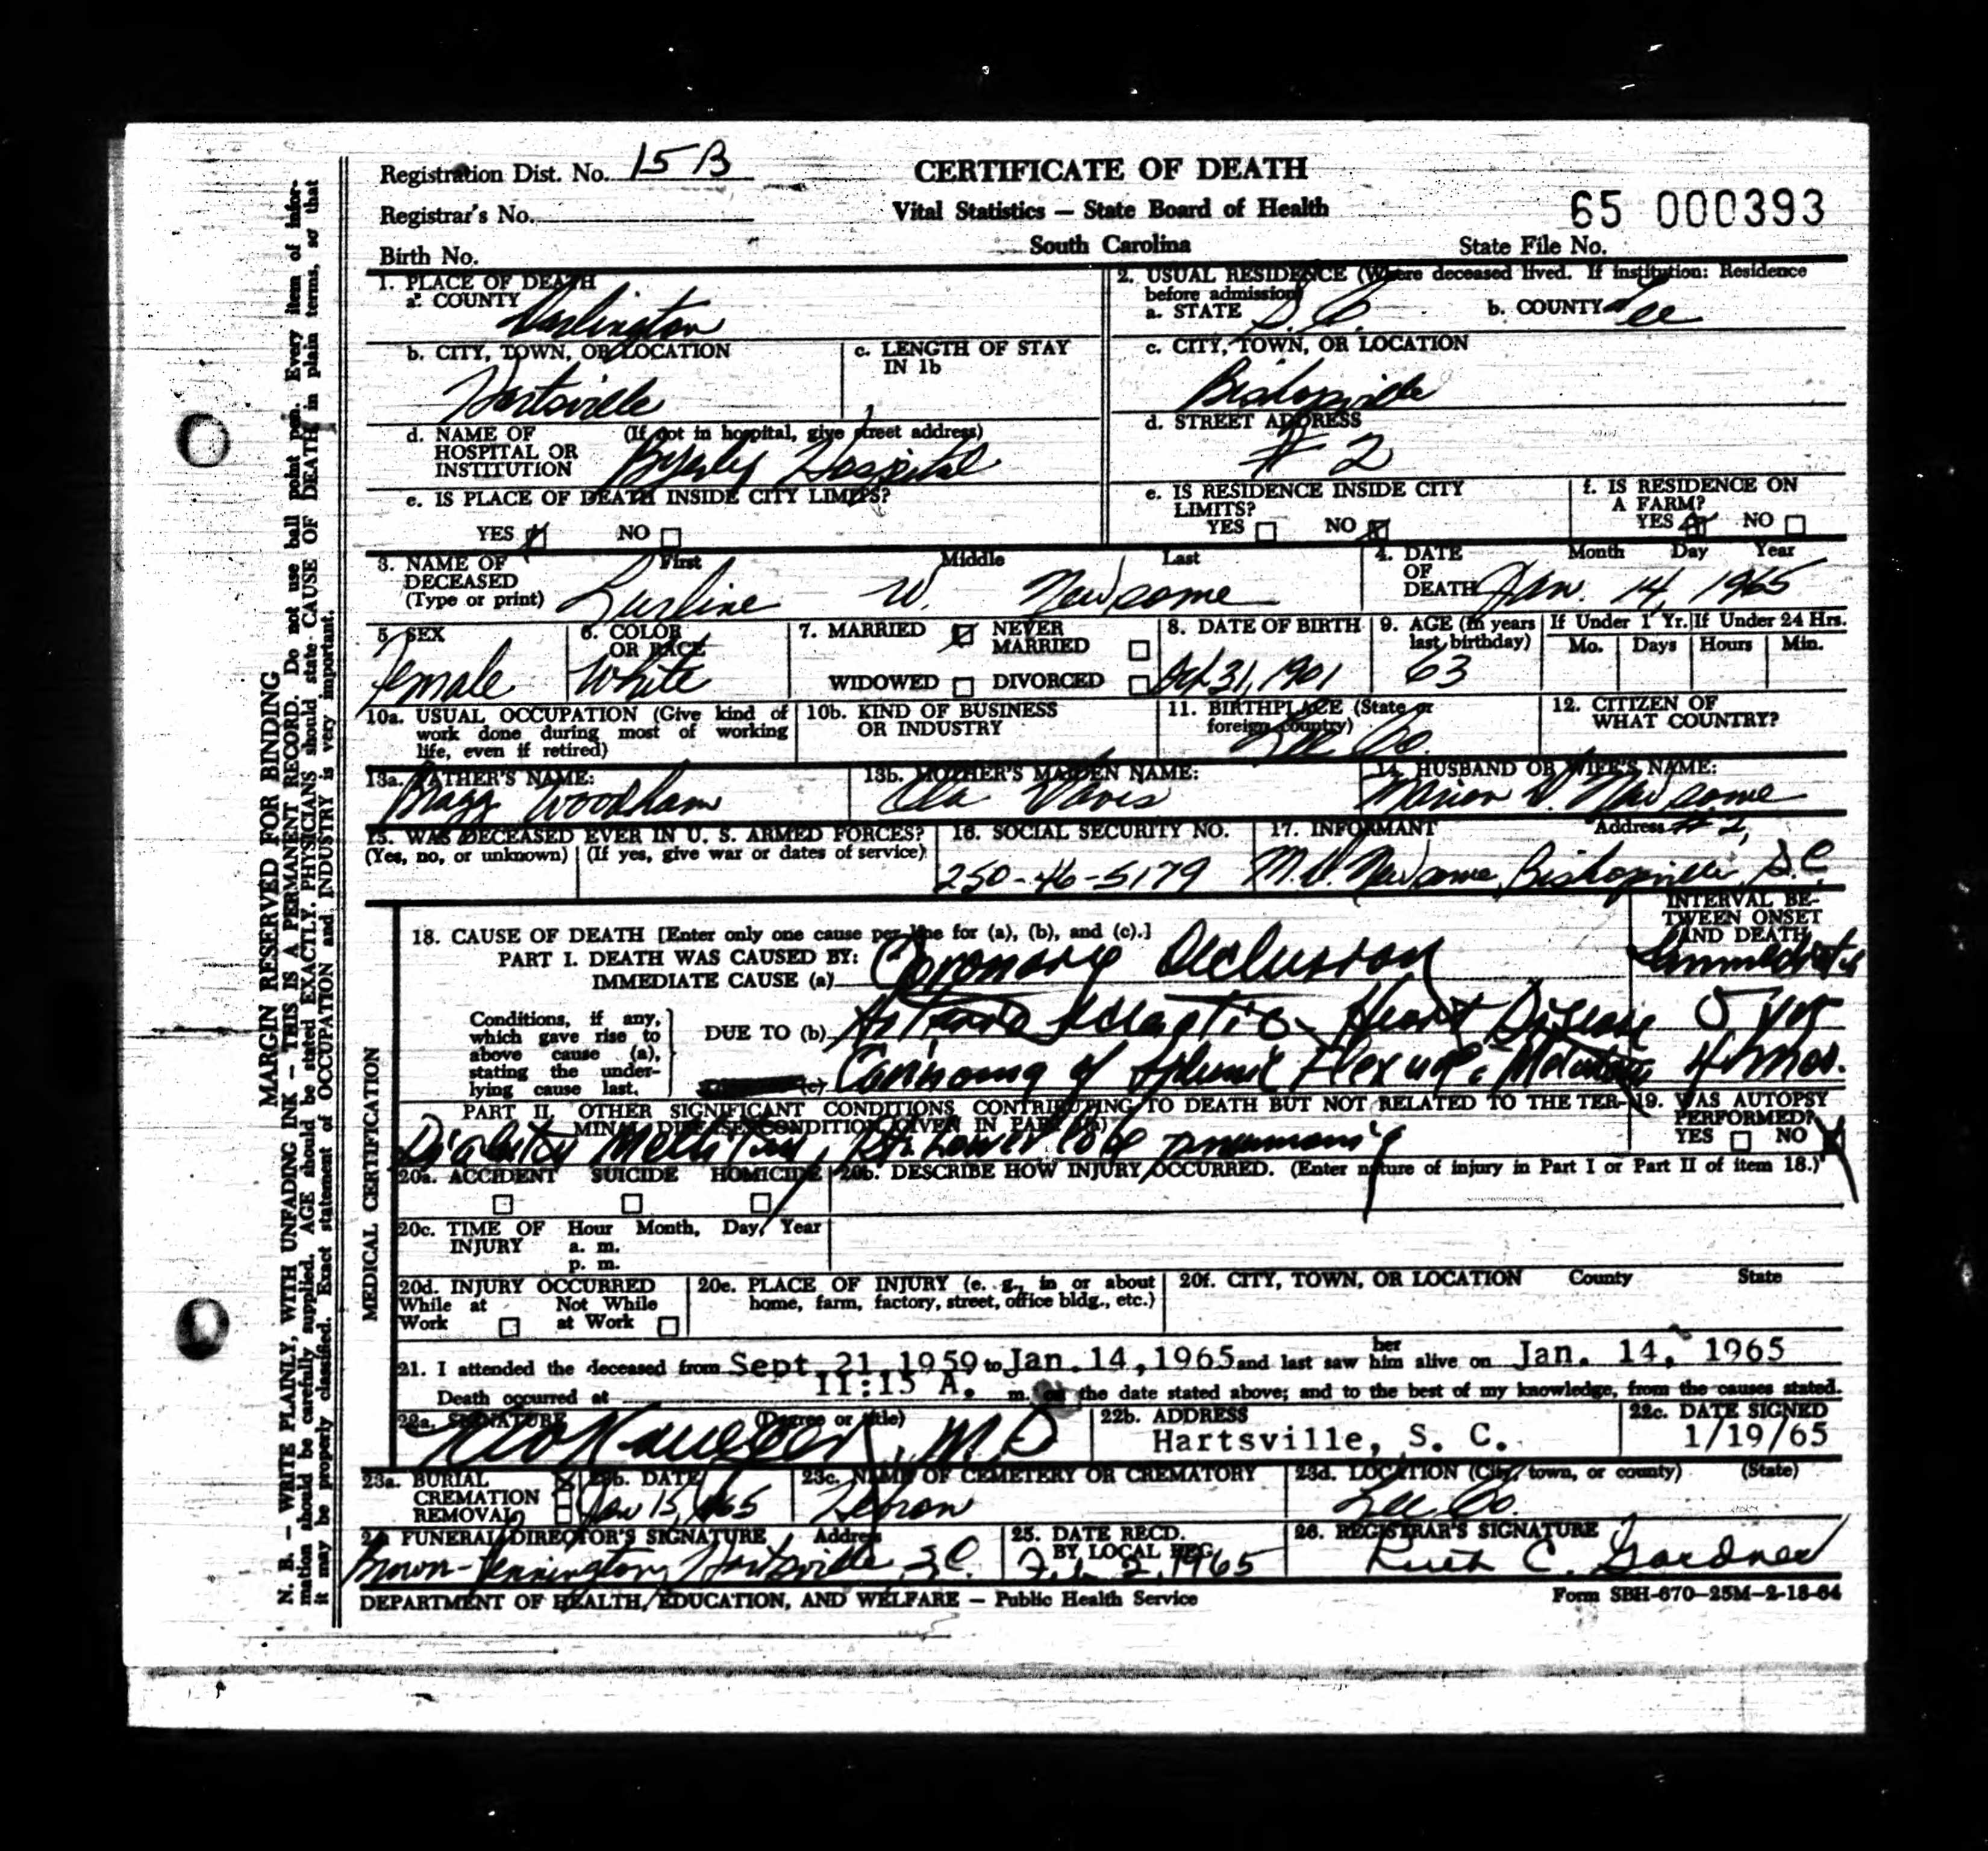 Registration Dist. No. 15 B
CERTIFICATE OF DEATH
Registrar's No.
Vital Statistics — State Board of Health
65 000393
Birth No.
South Carolina
State File No.
1. PLACE OF DEATH
a. COUNTY Darlington
2. USUAL RESIDENCE (Where deceased lived. If institution: Residence before admission)
a. STATE S.C. b. COUNTY Lee
b. CITY, TOWN, OR LOCATION Hartsville
c. LENGTH OF STAY IN 1b
c. CITY, TOWN, OR LOCATION Bishopville
d. NAME OF HOSPITAL OR INSTITUTION (If not in hospital, give street address) Byerly Hospital
d. STREET ADDRESS # 2
e. IS PLACE OF DEATH INSIDE CITY LIMITS?
YES NO
e. IS RESIDENCE INSIDE CITY LIMITS?
YES NO
f. IS RESIDENCE ON A FARM?
YES NO
3. NAME OF DECEASED (Type or print)
First Middle Last
Lurline W. Newsome
4. DATE OF DEATH Month Day Year
Jan. 14, 1965
5. SEX Female
6. COLOR OR RACE White
7. MARRIED NEVER MARRIED
WIDOWED DIVORCED
8. DATE OF BIRTH Oct 31, 1901
9. AGE (In years last birthday) 63
If Under 1 Yr. If Under 24 Hrs.
Mo. Days Hours Min.
10a. USUAL OCCUPATION (Give kind of work done during most of working life, even if retired)
10b. KIND OF BUSINESS OR INDUSTRY
11. BIRTHPLACE (State or foreign country) Lee Co.
12. CITIZEN OF WHAT COUNTRY?
13a. FATHER'S NAME: Bragg Woodham
13b. MOTHER'S MAIDEN NAME: Davis
14. HUSBAND OR WIFE'S NAME: Marion D. Newsome
15. WAS DECEASED EVER IN U. S. ARMED FORCES?
(Yes, no, or unknown) (If yes, give war or dates of service)
16. SOCIAL SECURITY NO. 250-46-5179
17. INFORMANT Address # 2,
M. D. Newsome, Bishopville, S.C.
MEDICAL CERTIFICATION
18. CAUSE OF DEATH [Enter only one cause per line for (a), (b), and (c).]
INTERVAL BETWEEN ONSET AND DEATH
PART I. DEATH WAS CAUSED BY:
IMMEDIATE CAUSE (a) Coronary Occlusion Immediate
Conditions, if any, which gave rise to above cause (a), stating the underlying cause last.
DUE TO (b) Heart Disease 5 yrs
(c) of Splenic Flexure 4 mos.
PART II. OTHER SIGNIFICANT CONDITIONS CONTRIBUTING TO DEATH BUT NOT RELATED TO THE TERMINAL DISEASE CONDITION GIVEN IN PART I(a)
Diabetes Mellitus, Rt. Lower lobe pneumonia
19. WAS AUTOPSY PERFORMED?
YES NO X
20a. ACCIDENT SUICIDE HOMICIDE
20b. DESCRIBE HOW INJURY OCCURRED. (Enter nature of injury in Part I or Part II of item 18.)
20c. TIME OF INJURY Hour Month, Day, Year
a. m.
p. m.
20d. INJURY OCCURRED
While at Work Not While at Work
20e. PLACE OF INJURY (e. g., in or about home, farm, factory, street, office bldg., etc.)
20f. CITY, TOWN, OR LOCATION County State
21. I attended the deceased from Sept 21, 1959 to Jan. 14, 1965 and last saw her him alive on Jan. 14, 1965
Death occurred at 11:15 A. m. on the date stated above; and to the best of my knowledge, from the causes stated.
22a. SIGNATURE (Degree or title) M.D
22b. ADDRESS Hartsville, S. C.
22c. DATE SIGNED 1/19/65
23a. BURIAL CREMATION REMOVAL
23b. DATE Jan 15, 1965
23c. NAME OF CEMETERY OR CREMATORY Hebron
23d. LOCATION (City, town, or county) (State) Lee Co.
24. FUNERAL DIRECTOR'S SIGNATURE Address
Brown-Pennington, Hartsville, S.C.
25. DATE RECD. BY LOCAL REG. Feb 2, 1965
26. REGISTRAR'S SIGNATURE Ruth C. Gardner
DEPARTMENT OF HEALTH, EDUCATION, AND WELFARE — Public Health Service
Form SBH-670-25M-2-18-64
MARGIN RESERVED FOR BINDING
N. B. — WRITE PLAINLY, WITH UNFADING INK — THIS IS A PERMANENT RECORD. Do not use ball point pen. Every item of information should be carefully supplied. AGE should be stated EXACTLY. PHYSICIANS should state CAUSE OF DEATH in plain terms, so that it may be properly classified. Exact statement of OCCUPATION and INDUSTRY is very important.